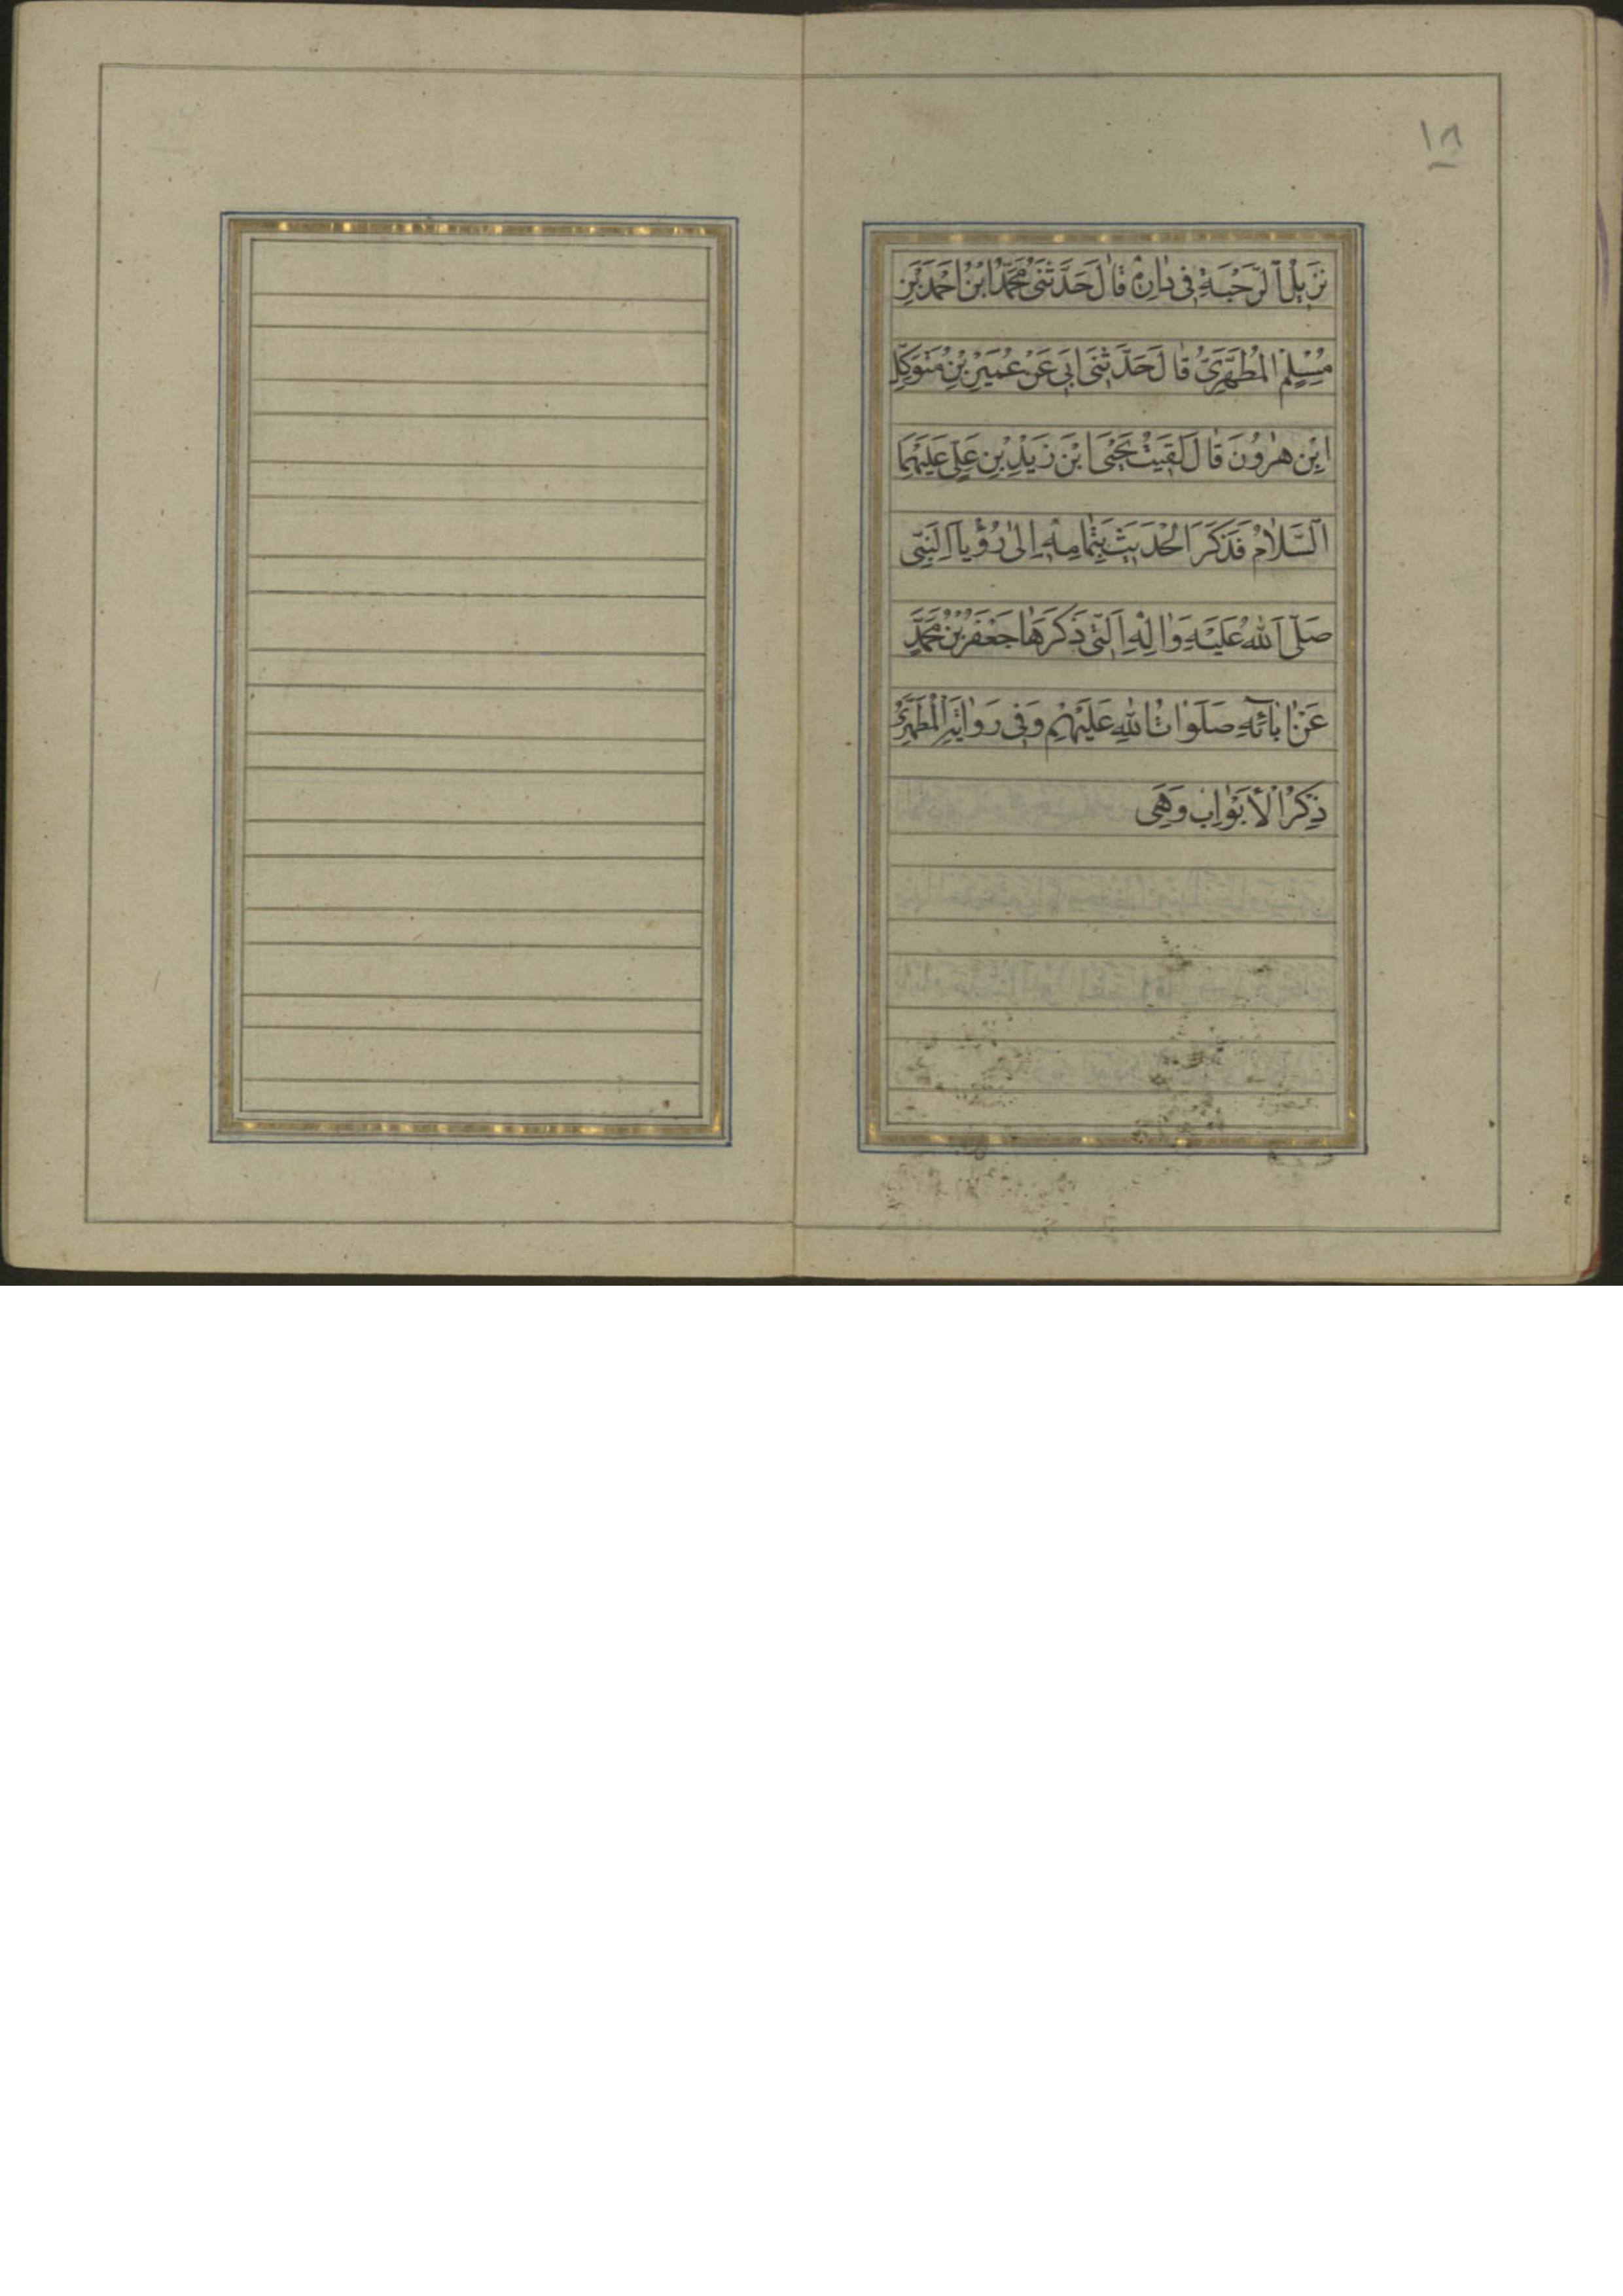 ١٨
نَزِيلُ الرَّحْبَةِ فِي دَارِهِ قَالَ حَدَّثَنِي مُحَمَّدُ ابْنُ اَحْمَدَ بْنِ
مُسْلِمٍ الْمُطَهَّرِيُّ قَالَ حَدَّثَنِي اَبِي عَنْ عُمَيْرِ بْنِ مُتَوَكِّلِ
ابْنِ هٰرُونَ قَالَ لَقِيتُ يَحْيَى ابْنَ زَيْدِ بْنِ عَلِيٍّ عَلَيْهِمَا
السَّلَامُ فَذَكَرَ الْحَدِيثَ بِتَمَامِهِ اِلٰى رُؤْيَا النَّبِيِّ
صَلَّى اللهُ عَلَيْهِ وَاٰلِهِ الَّتِي ذَكَرَهَا جَعْفَرُ بْنُ مُحَمَّدٍ
عَنْ اٰبَآئِهِ صَلَوَاتُ اللهِ عَلَيْهِمْ وَفِي رَوٰايَةِ الْمُطَهَّرِيِّ
ذِكْرُ الْأَبْوَابِ وَهِيَ